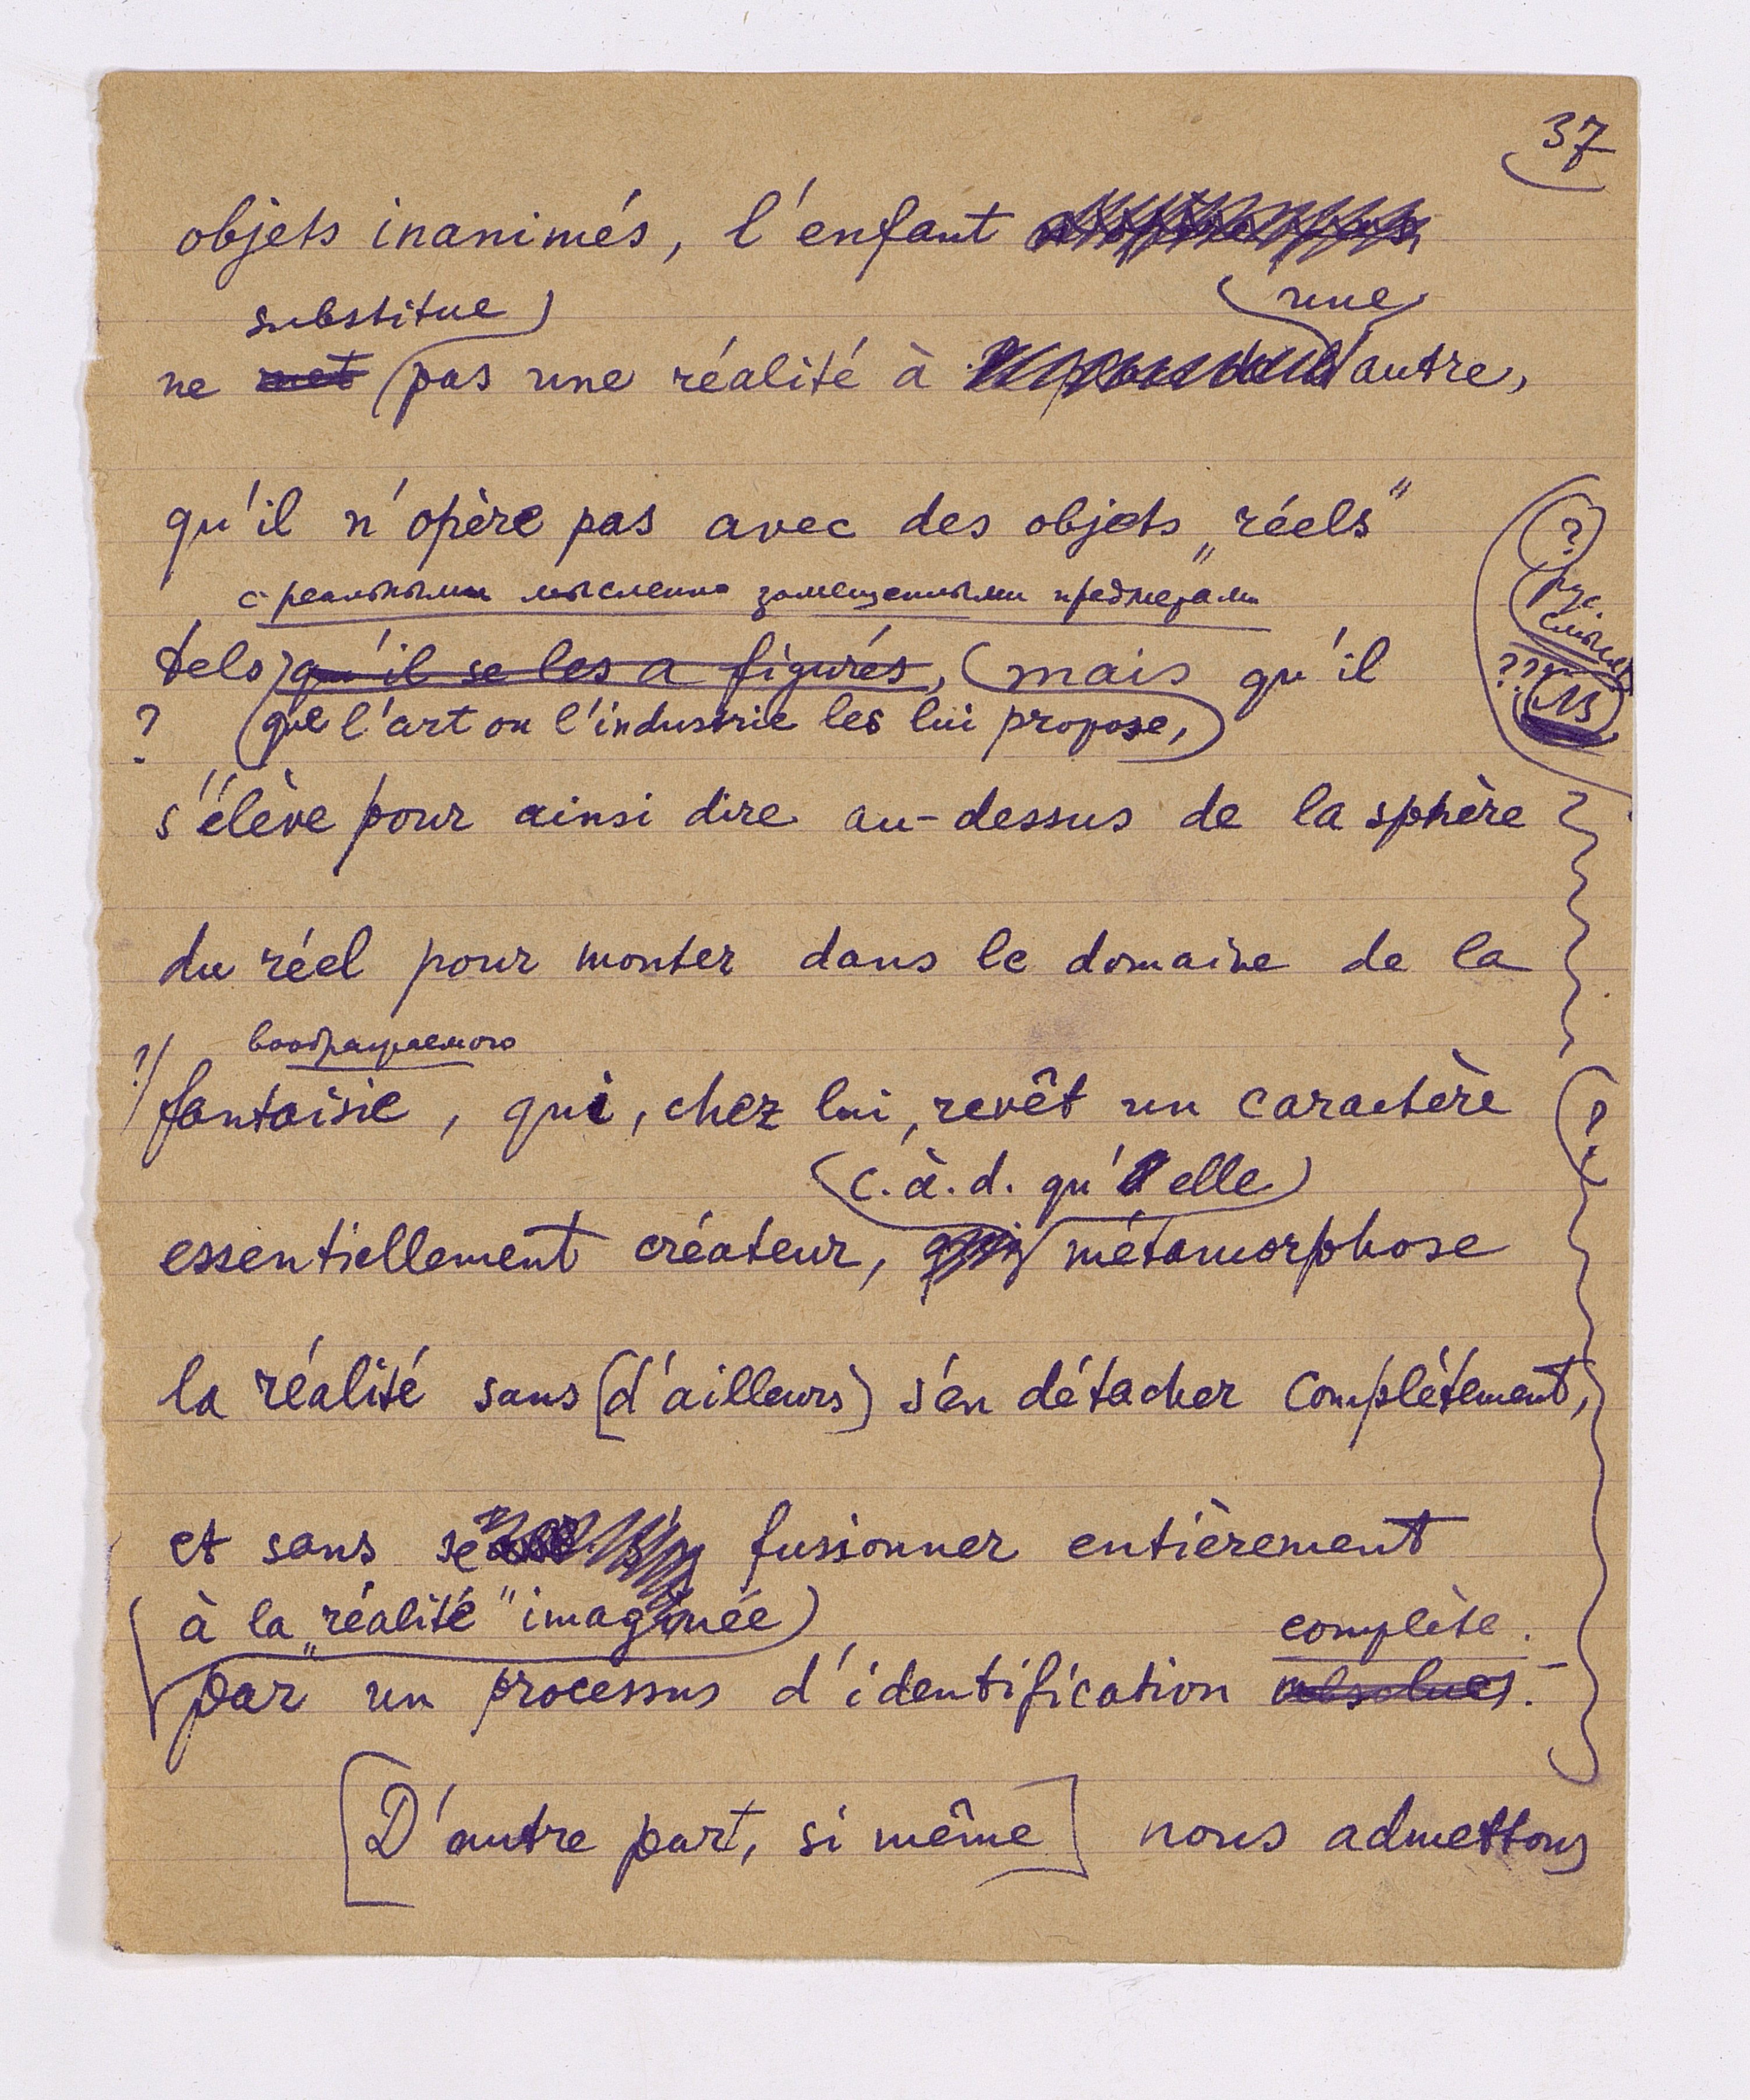 37
objets inanimés, l'enfant
substitue une
ne met pas une réalité à autre,
qu'il n'opère pas avec des objets „réels"
с реальными мысленно замещенными предметами
tels qu'il se les a figurés, mais qu'il
? que l'art ou l'industrie les lui propose,
?
рус.
??
NB
s'élève pour ainsi dire au-dessus de la sphère
du réel pour monter dans le domaine de la
воображаемого
?/ fantaisie, qui, chez lui, revêt un caractère
?
c.à.d. qu'elle
essentiellement créateur, qui métamorphose
la réalité sans [d'ailleurs] s'en détacher complètement,
et sans se fusionner entièrement
à la „réalité" imaginée complète.
par un processus d'identification absolue.–
[D'autre part, si même] nous admettons